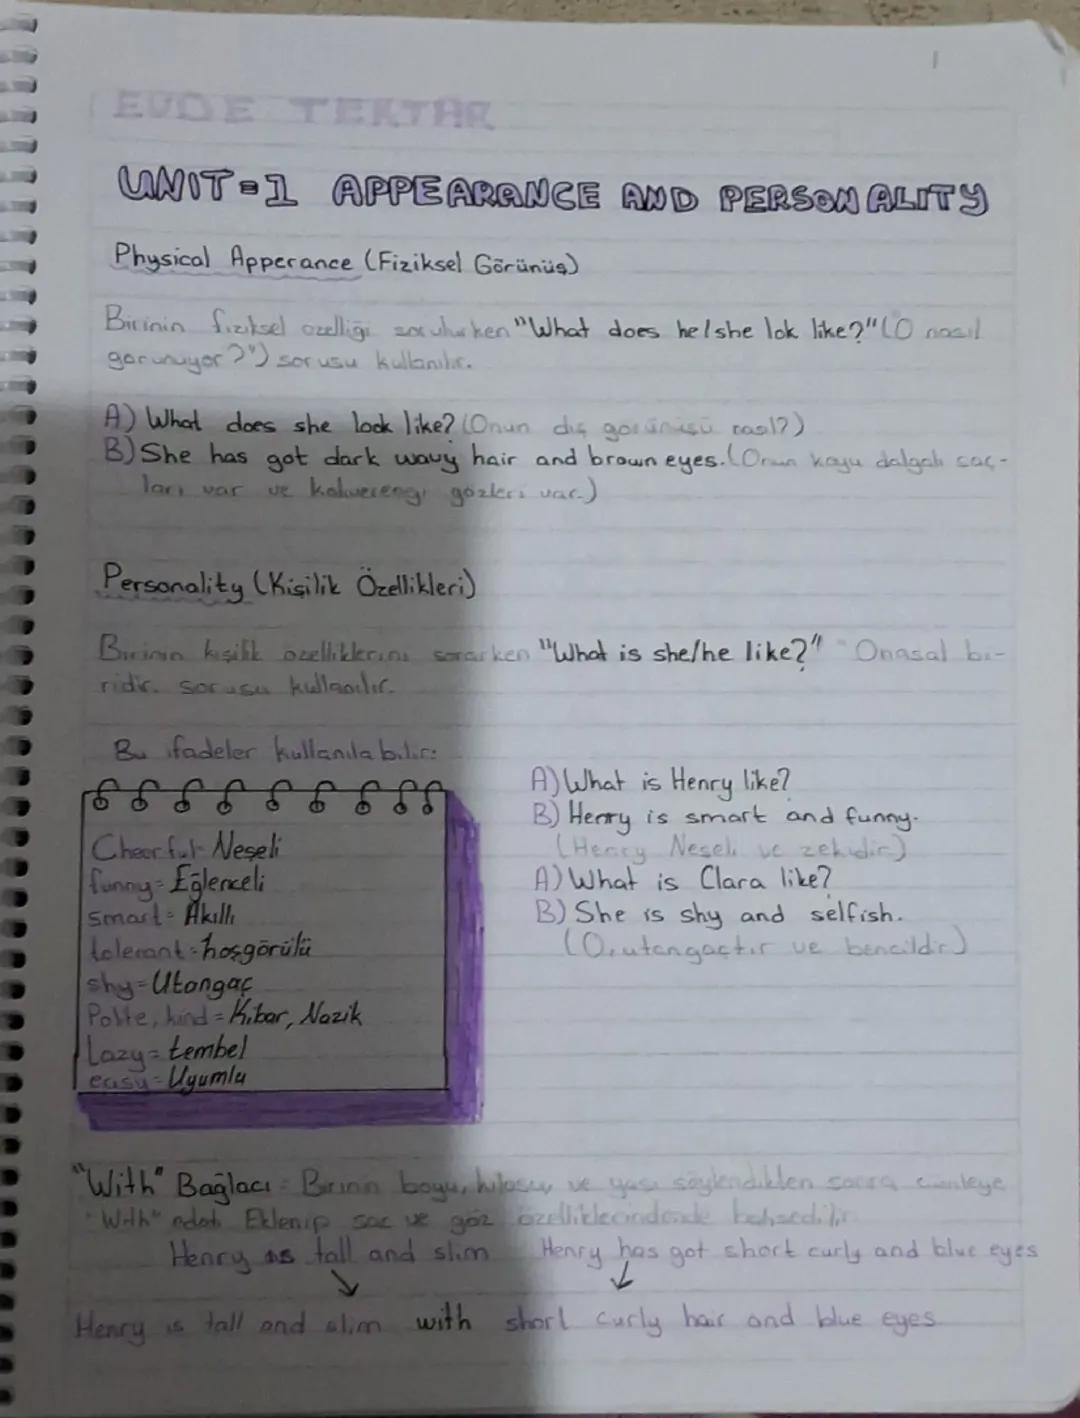 1
EVDE TEKTAR
UNIT=1 APPEARANCE AND PERSONALITY
Physical Apperance (Fiziksel Görünüş)
Birinin fiziksel özelliği sorulurken "What does he/she lok like?" (O nasıl
görünüyor?") sorusu kullanılır.
A) What does she look like? (Onun dış görünüşü nasıl?)
B) She has got dark wavy hair and brown eyes. (Onun koyu dalgalı saç-
ları var ve kahverengi gözleri var.)
Personality (Kişilik Özellikleri)
Birinin kişilik özelliklerini sorarken "What is she/he like?" "Onasal bi-
ridir. sorusu kullanılır.
Bu ifadeler kullanılabilir:
Cheerful- Neşeli
funny= Eğlenceli
smart= Akıllı
tolerant=hoşgörülü
shy=Utangaç
Polite, kind = Kibar, Nazik
Lazy= tembel
easy=Uyumlu
A) What is Henry like?
B) Henry is smart and funny.
(Henry Neşeli ve zekidir.)
A) What is Clara like?
B) She is shy and selfish.
(O, utangaçtır ve bencildir.)
"With" Bağlacı = Birinin boyu, kilosu ve yaşı söylendikten sonra cümleye
"With" edatı Eklenip saç ve göz özelliklerinden bahsedilir.
Henry is tall and slim Henry has got short curly and blue eyes
Henry is tall and slim with short curly hair and blue eyes